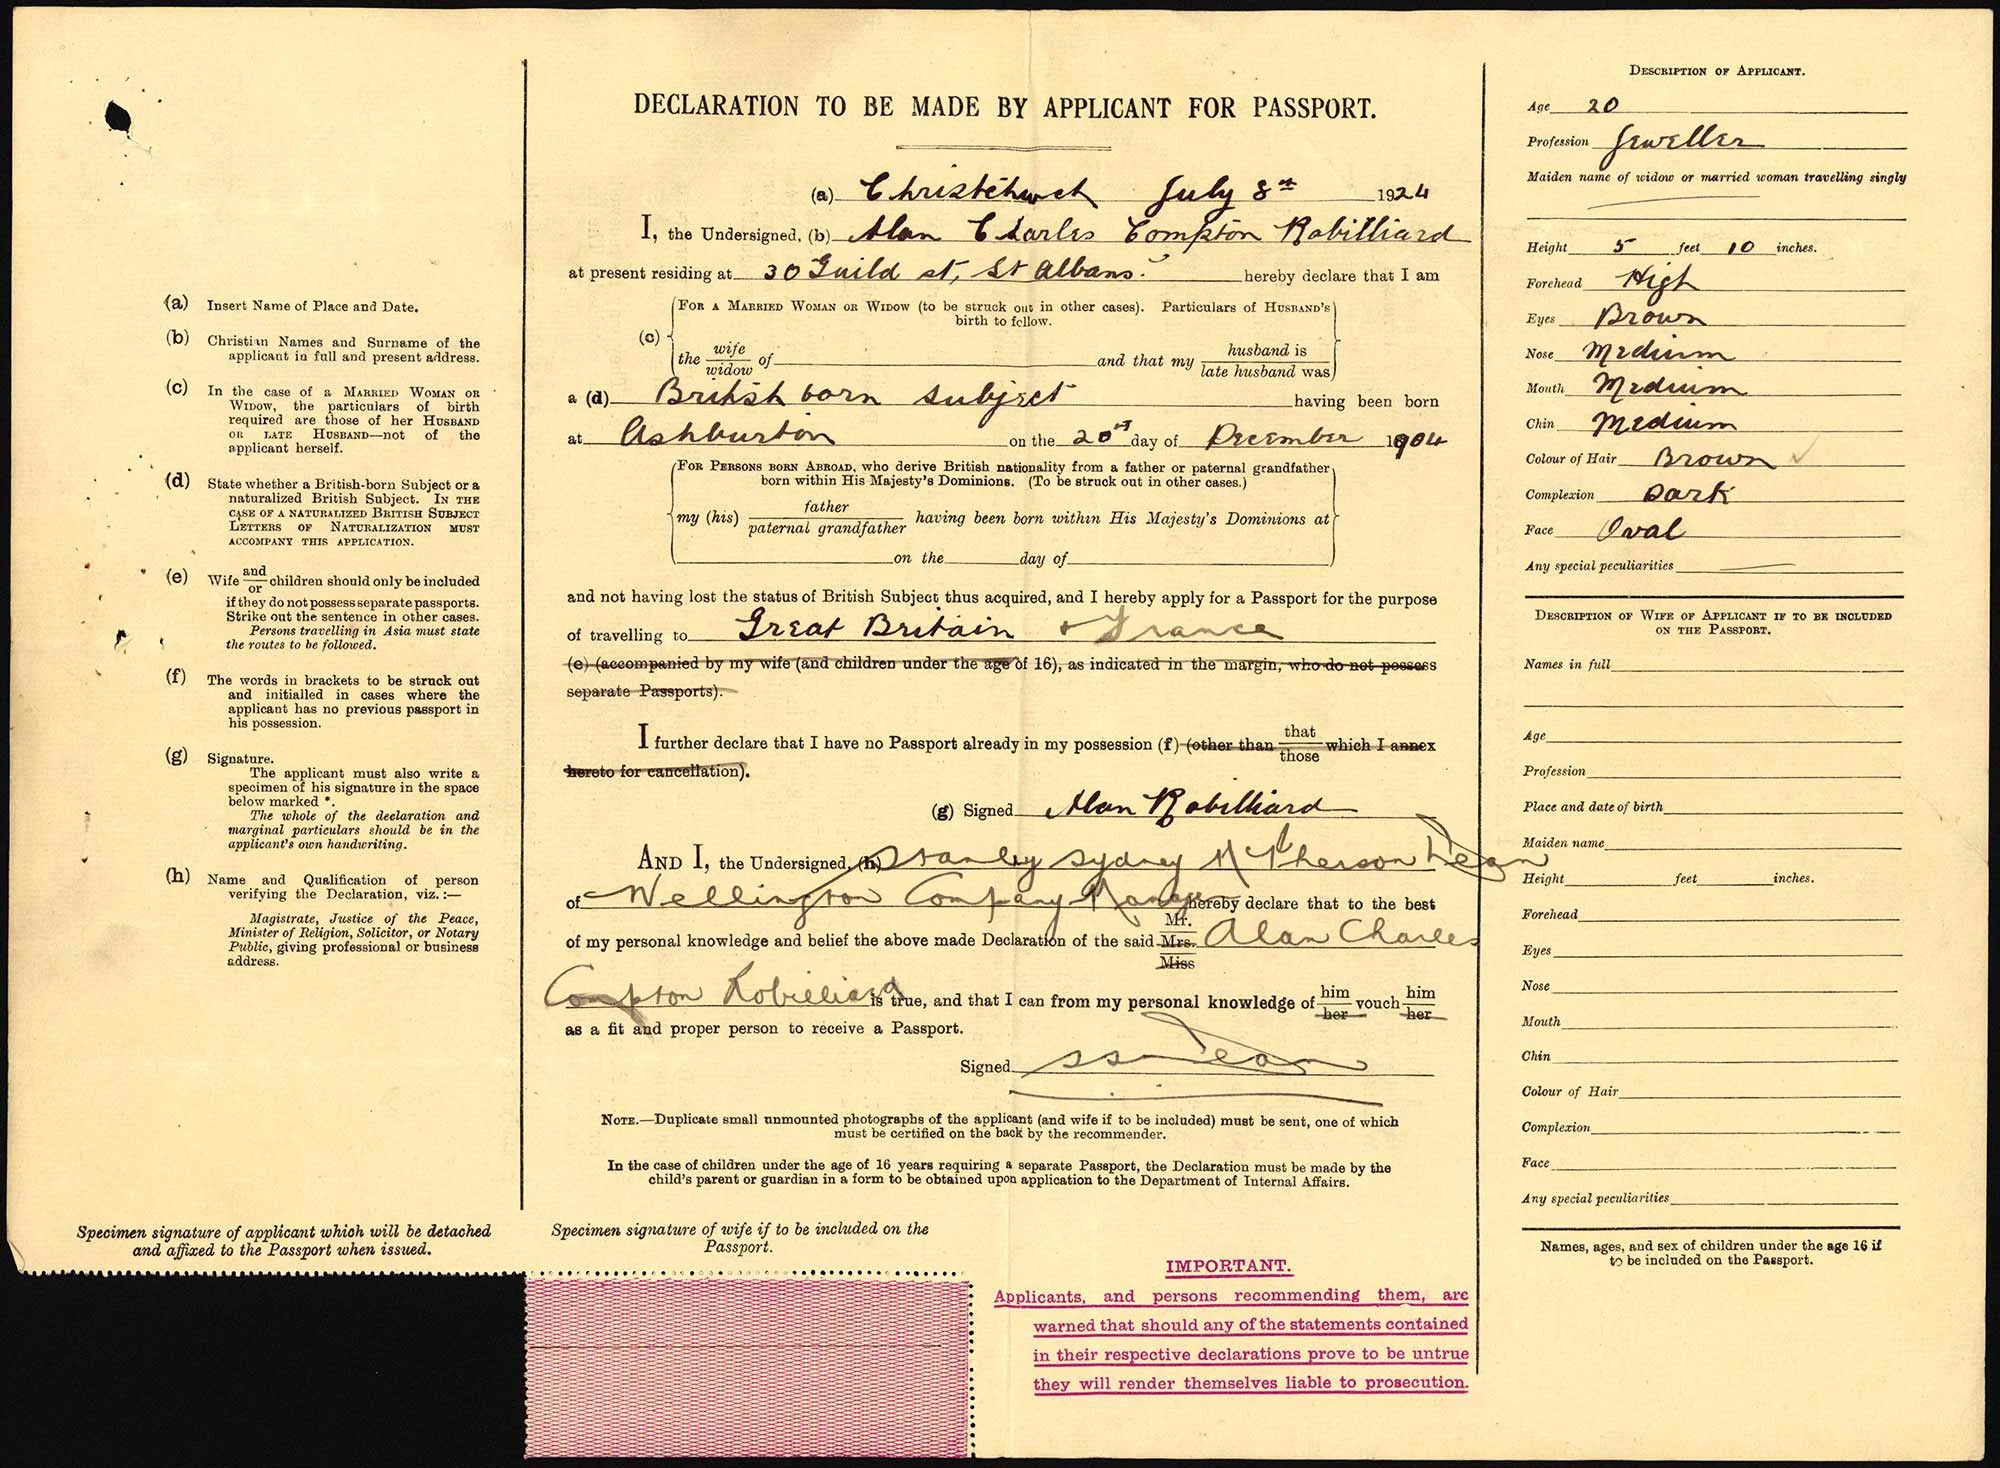 (a) Insert Name of Place and Date.
(b) Christian Names and Surname of the
applicant in full and present address.
(c) In the case of a MARRIED WOMAN OR
WIDOW, the particulars of birth
required are those of her HUSBAND
OR LATE HUSBAND—not of the
applicant herself.
(d) State whether a British-born Subject or a
naturalized British Subject. IN THE
CASE OF A NATURALIZED BRITISH SUBJECT
LETTERS OF NATURALIZATION MUST
ACCOMPANY THIS APPLICATION.
(e) Wife and/or children should only be included
if they do not possess separate passports.
Strike out the sentence in other cases.
Persons travelling in Asia must state
the routes to be followed.
(f) The words in brackets to be struck out
and initialled in cases where the
applicant has no previous passport in
his possession.
(g) Signature.
The applicant must also write a
specimen of his signature in the space
below marked *.
The whole of the declaration and
marginal particulars should be in the
applicant's own handwriting.
(h) Name and Qualification of person
verifying the Declaration, viz.:—
Magistrate, Justice of the Peace,
Minister of Religion, Solicitor, or Notary
Public, giving professional or business
address.
Specimen signature of applicant which will be detached
and affixed to the Passport when issued.
DECLARATION TO BE MADE BY APPLICANT FOR PASSPORT.
(a) Christchurch July 8th 1924
I, the Undersigned, (b) Alan Charles Compton Robilliard
at present residing at 30 Guild st, St Albans. hereby declare that I am
(c) FOR A MARRIED WOMAN OR WIDOW (to be struck out in other cases). Particulars of HUSBAND'S
birth to follow.
the wife/widow of and that my husband is/late husband was
a (d) British born subject having been born
at Ashburton on the 20th day of December 1904
FOR PERSONS BORN ABROAD, who derive British nationality from a father or paternal grandfather
born within His Majesty's Dominions. (To be struck out in other cases.)
my (his) father/paternal grandfather having been born within His Majesty's Dominions at
on the day of
and not having lost the status of British Subject thus acquired, and I hereby apply for a Passport for the purpose
of travelling to Great Britain + France
(e) (accompanied by my wife (and children under the age of 16), as indicated in the margin, who do not possess
separate Passports).
I further declare that I have no Passport already in my possession (f) (other than that/those which I annex
hereto for cancellation).
(g) Signed Alan Robilliard
AND I, the Undersigned, (h) Stanley Sydney McPherson Dean
of Wellington Company Manager hereby declare that to the best
of my personal knowledge and belief the above made Declaration of the said Mr. Mrs. Miss Alan Charles
Compton Robilliard is true, and that I can from my personal knowledge of him/her vouch him/her
as a fit and proper person to receive a Passport.
Signed SS Dean
NOTE.—Duplicate small unmounted photographs of the applicant (and wife if to be included) must be sent, one of which
must be certified on the back by the recommender.
In the case of children under the age of 16 years requiring a separate Passport, the Declaration must be made by the
child's parent or guardian in a form to be obtained upon application to the Department of Internal Affairs.
Specimen signature of wife if to be included on the
Passport.
IMPORTANT.
Applicants, and persons recommending them, are
warned that should any of the statements contained
in their respective declarations prove to be untrue
they will render themselves liable to prosecution.
DESCRIPTION OF APPLICANT.
Age 20
Profession Jeweller
Maiden name of widow or married woman travelling singly
Height 5 feet 10 inches.
Forehead High
Eyes Brown
Nose Medium
Mouth Medium
Chin Medium
Colour of Hair Brown
Complexion Dark
Face Oval
Any special peculiarities
DESCRIPTION OF WIFE OF APPLICANT IF TO BE INCLUDED
ON THE PASSPORT.
Names in full
Age
Profession
Place and date of birth
Maiden name
Height feet inches.
Forehead
Eyes
Nose
Mouth
Chin
Colour of Hair
Complexion
Face
Any special peculiarities
Names, ages, and sex of children under the age 16 if
to be included on the Passport.